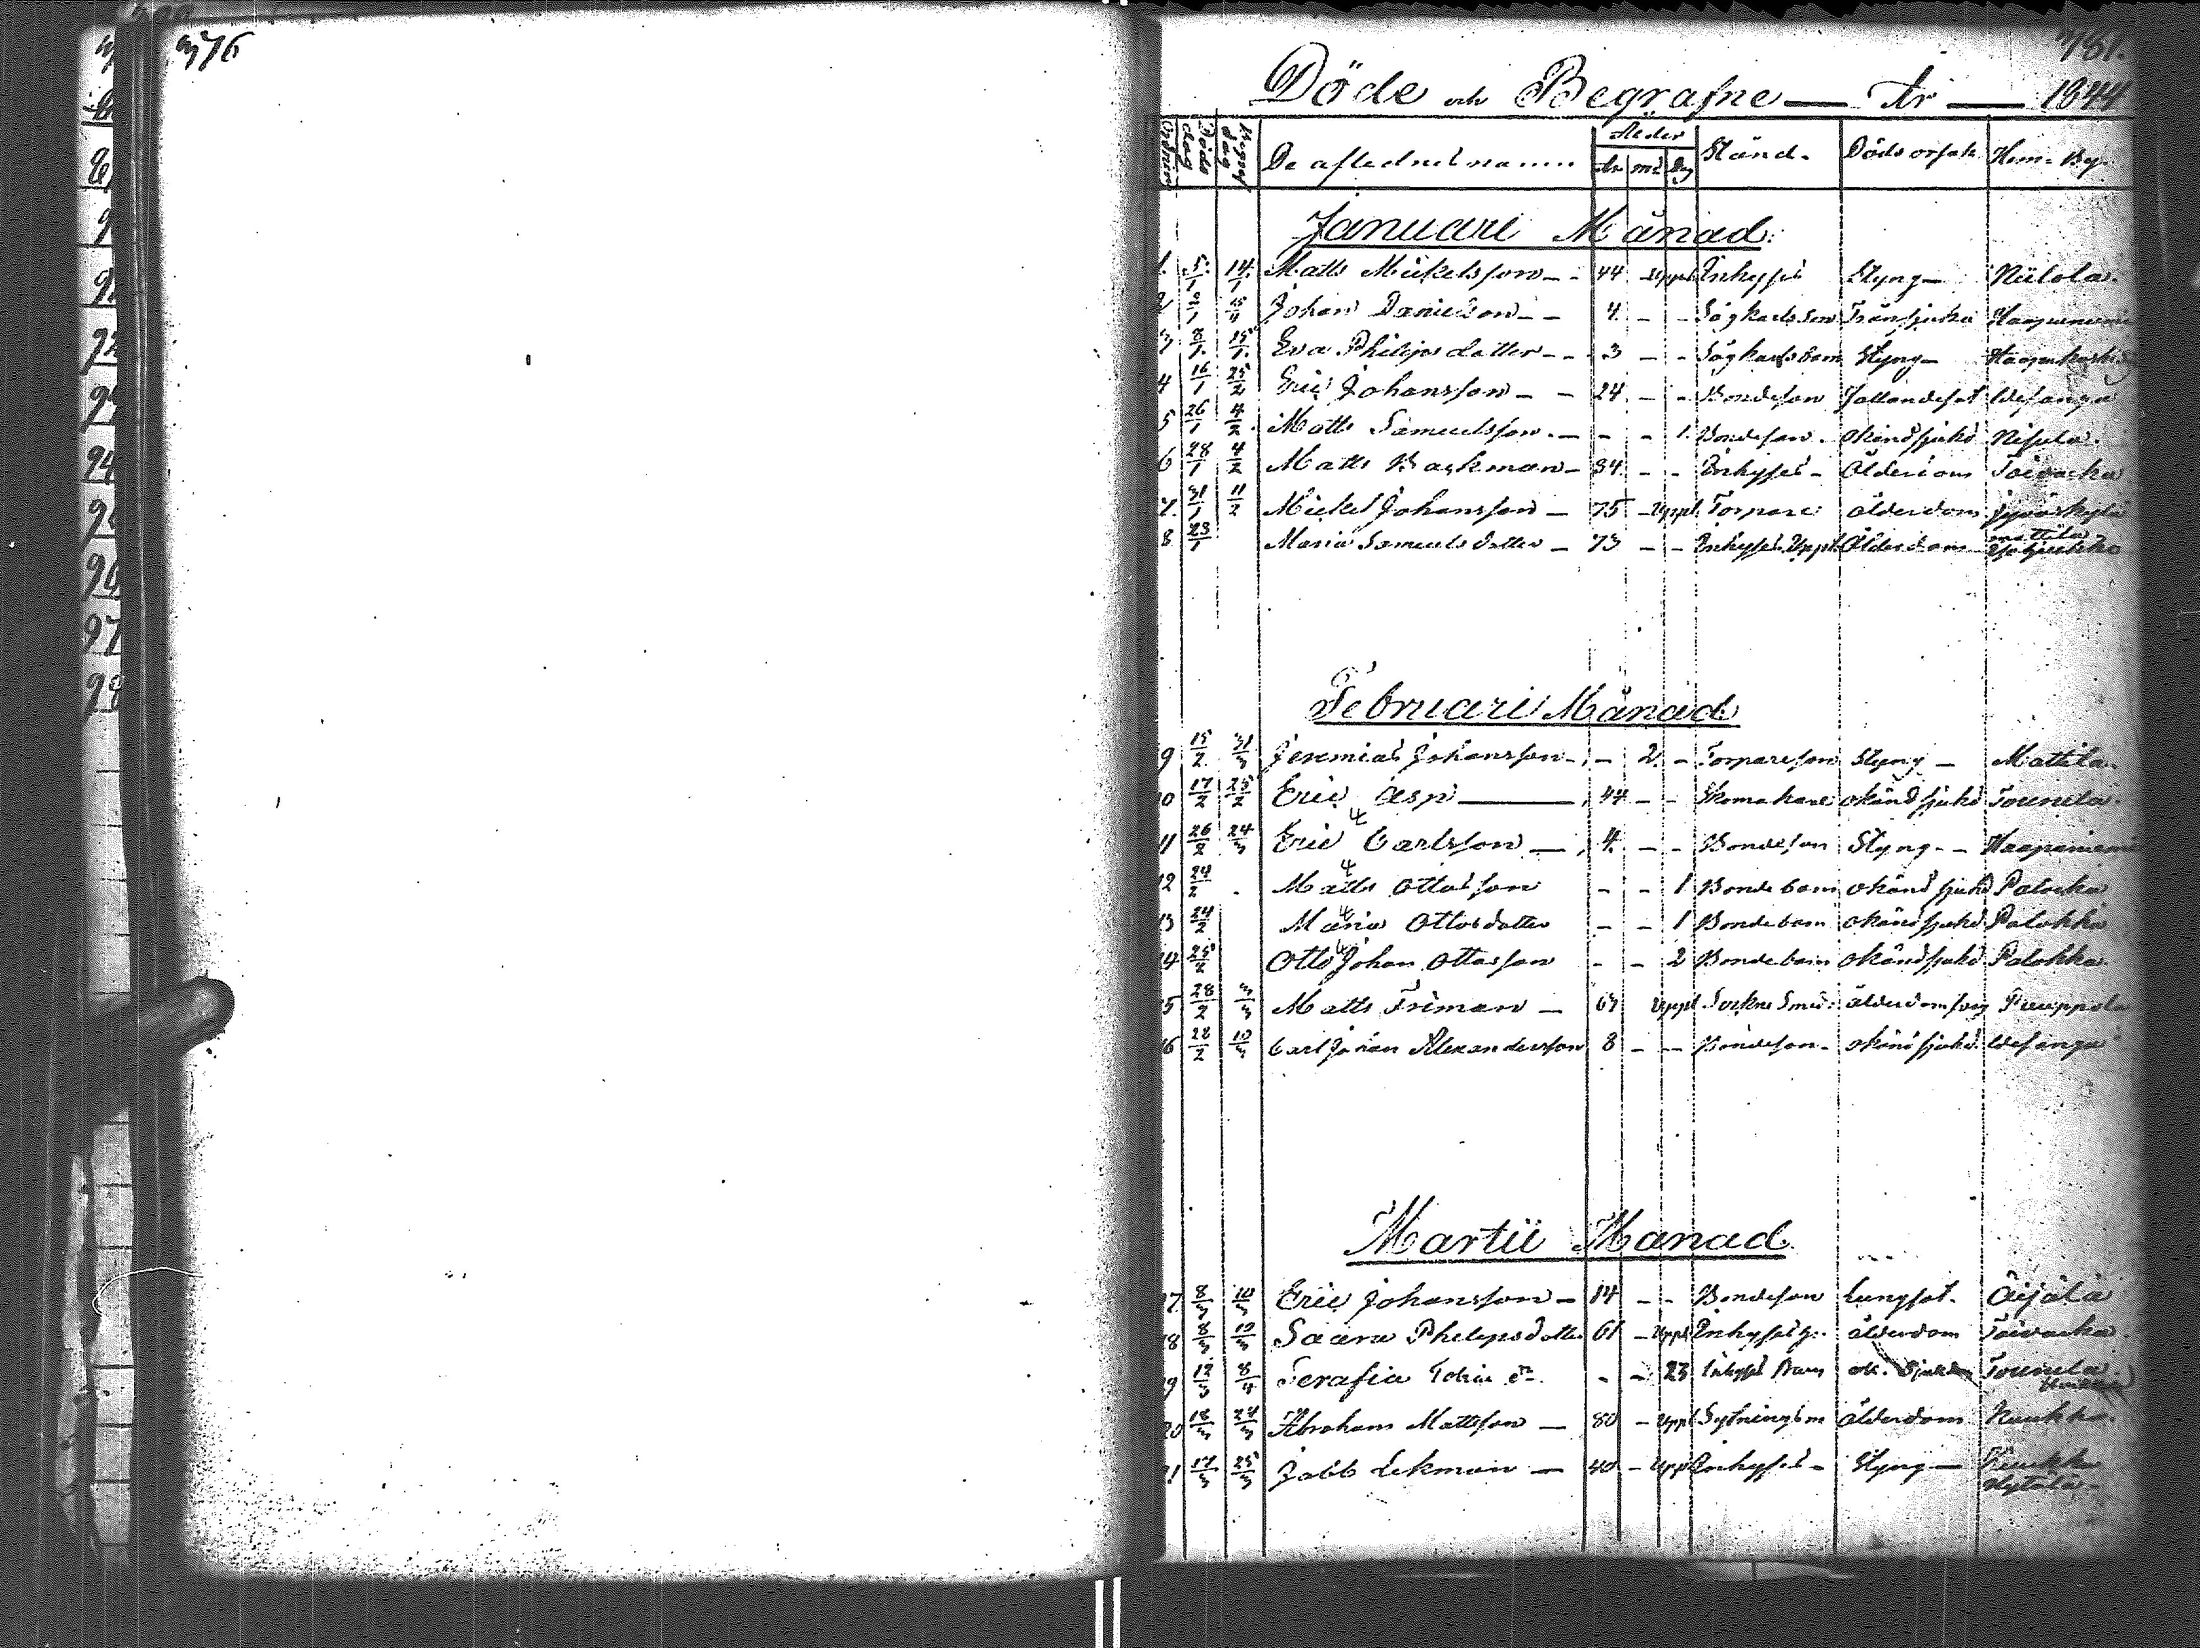 976
781.
Döde och Begrafne — År — 1844
Ordnin Döds dag Begraf dag De aflednes namn Ålder År Md Dag Stånd. Dödsorsak Hem-By.
Januari Månad.
1. 5/1 14/1 Matts Mickelsson 44 - uppt Inhyses Styng Niilola.
2 2/1 15/1 Johan Danielson 4 - - Sågkarls son Haapaniemi
3 8/1 15/1 Eva Philips dotter 3 - - Sågkarls barn Styng Haapakoski
4 16/1 25/2 Eric Johansson 24 - - Bondeson Fallandesot Wesanga
5 26/1 4/2 Matts Samuelsson - - 1. Bondeson. okänd sjukd Nisula.
6 28/1 4/2 Matts Backman 84 - - Inhyses Ålderdom Toivacka
7. 31/1 11/2 Mickel Johansson 75 - uppt Torpare ålderdom Jyväskylä
8 23/1 Maria Samuels dotter 73 - - Inhyses Uppt Ålderdom Mattila
Februari Månad
9 15/2 31/3 Jeremias Johansson - 2 - Torpareson Styng Mattila
10 17/2 25/2 Eric Asp 44 - - Skomakare okänd sjukd Tourula
11 26/2 24/3 Eric Carlsson 4 - - Bondeson Styng Haapaniemi
12 24/2 Matts Ottosson - - 1 Bondebarn okänd sjukd Palocka
13 24/2 Maria Ottosdotter - - 1 Bondebarn okänd sjukd Palokka
14 25/2 Otto Johan Ottosson - - 2 Bondebarn okänd sjukd Palokka
15 28/2 3/3 Matts Friman 67 uppt Sockne Smed ålderdomsvag Puuppola
16 28/2 10/3 Carl Johan Alexandersson 8 - - Bondeson okänd sjukd. Wesanga
Martii Månad
17 8/3 10/3 Eric Johansson 14 - - Bondeson Lungsot. Äijälä
18 8/3 10/3 Saara Philipsdotter 61 - uppt Inhyses ålderdom Toivacka
19 12/3 8/4 Serafia - - 23 Inhyses Barn ok. Sjukdom Tourula
20 18/3 24/3 Abraham Mattsson 80 - uppt Sytningsm ålderdom Kuukka.
21 17/3 25/3 Jacob Ekman 40 - uppt Inhyses Styng Kuukka